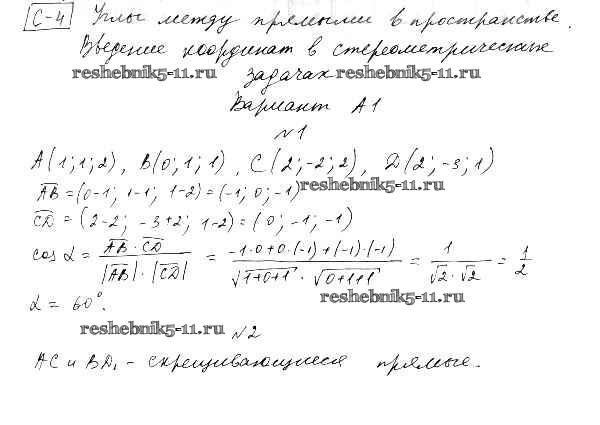 С-4 Углы между прямыми в пространстве.
Введение координат в стереометрических
reshebnik5-11.ru задачах reshebnik5-11.ru
Вариант А1
№1
A(1;1;2), B(0;1;1), C(2;-2;2), D(2;-3;1)
AB = (0-1; 1-1; 1-2) = (-1; 0; -1) reshebnik5-11.ru
CD = (2-2; -3+2; 1-2) = (0; -1; -1)
cos α = AB·CD / |AB|·|CD| = -1·0+0·(-1)+(-1)·(-1) / √1+0+1 · √0+1+1 = 1 / √2·√2 = 1/2
α = 60°. reshebnik5-11.ru
reshebnik5-11.ru №2
AC и BD₁ - скрещивающиеся прямые.